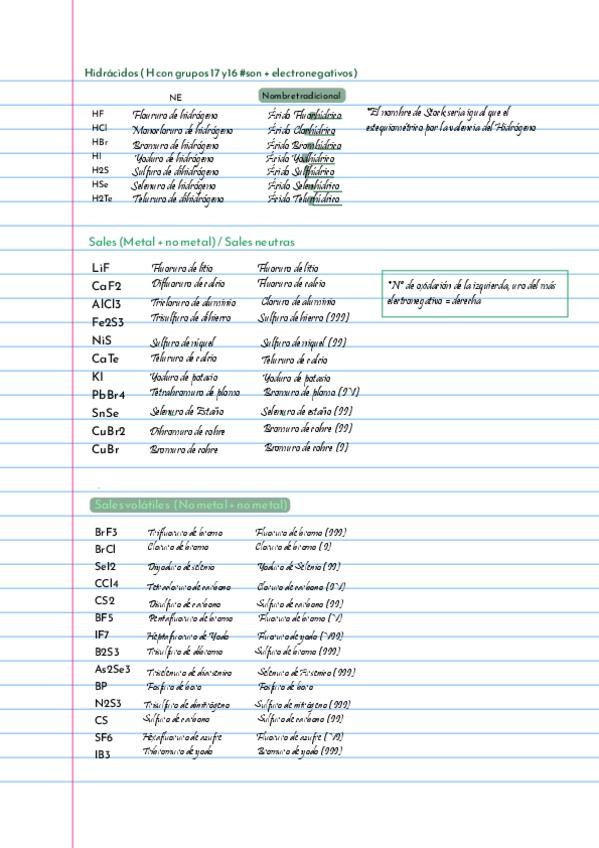 Hidrácidos ( H con grupos 17 y 16 #son + electronegativos)
NE Nombre tradicional
HF Floururo de hidrógeno Ácido Fluorhídrico
HCl Monocloruro de hidrógeno Ácido Clorhídrico
HBr Bromuro de hidrógeno Ácido Bromhídrico
HI Yoduro de hidrógeno Ácido Yodhídrico
H2S Sulfuro de dihidrógeno Ácido Sulfhídrico
HSe Selenuro de hidrógeno Ácido Selenhídrico
H2Te Telururo de dihidrógeno Ácido Telurhídrico
*El nombre de Stock sería igual que el
estequiométrico por la valencia del Hidrógeno
Sales (Metal + no metal) / Sales neutras
LiF Fluoruro de litio Fluoruro de litio
CaF2 Difluoruro de calcio Fluoruro de calcio
AlCl3 Tricloruro de aluminio Cloruro de aluminio
Fe2S3 Trisulfuro de dihierro Sulfuro de hierro (III)
NiS Sulfuro de niquel Sulfuro de niquel (II)
CaTe Telururo de calcio Telururo de calcio
KI Yoduro de potasio Yoduro de potasio
PbBr4 Tetrabromuro de plomo Bromuro de plomo (IV)
SnSe Selenuro de Estaño Selenuro de estaño (II)
CuBr2 Dibromuro de cobre Bromuro de cobre (II)
CuBr Bromuro de cobre Bromuro de cobre (I)
*Nº de oxidación de la izquierda, uro del más
electronegativo = derecha
Sales volátiles (No metal + no metal)
BrF3 Trifluoruro de bromo Fluoruro de bromo (III)
BrCl Cloruro de bromo Cloruro de bromo (I)
SeI2 Diyoduro de selenio Yoduro de Selenio (II)
CCl4 Tetracloruro de carbono Cloruro de carbono (IV)
CS2 Disulfuro de carbono Sulfuro de carbono (IV)
BF5 Pentafluoruro de bromo Fluoruro de bromo (V)
IF7 Heptafluoruro de Yodo Fluoruro de yodo (VII)
B2S3 Trisulfuro de dibromo Sulfuro de bromo (III)
As2Se3 Triselenuro de diarsenico Selenuro de Arsenico (III)
BP Fosfuro de boro Fosfuro de boro
N2S3 Trisulfuro de dinitrógeno Sulfuro de nitrógeno (III)
CS Sulfuro de carbono Sulfuro de carbono (II)
SF6 Hexafluoruro de azufre Fluoruro de azufre (VI)
IB3 Tribromuro de yodo Bromuro de yodo (III)